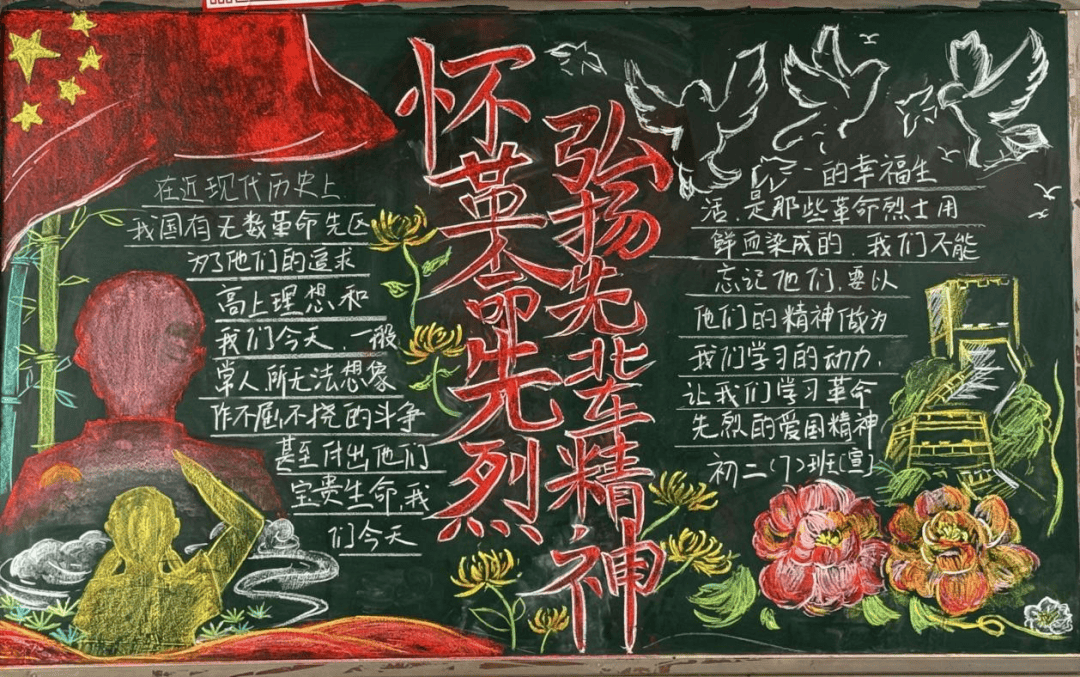 怀革命先烈
弘扬先辈精神
在近现代历史上
我国有无数革命先区
为了他们的追求
高上理想和
我们今天,一般
常人所无法想像
作不屈不挠的斗争
甚至付出他们
宝贵生命,我
们今天
一的幸福生
活,是那些革命烈士用
鲜血染成的,我们不能
忘记他们,要以
他们的精神做为
我们学习的动力,
让我们学习革命
先烈的爱国精神
初二(7)班[宣]